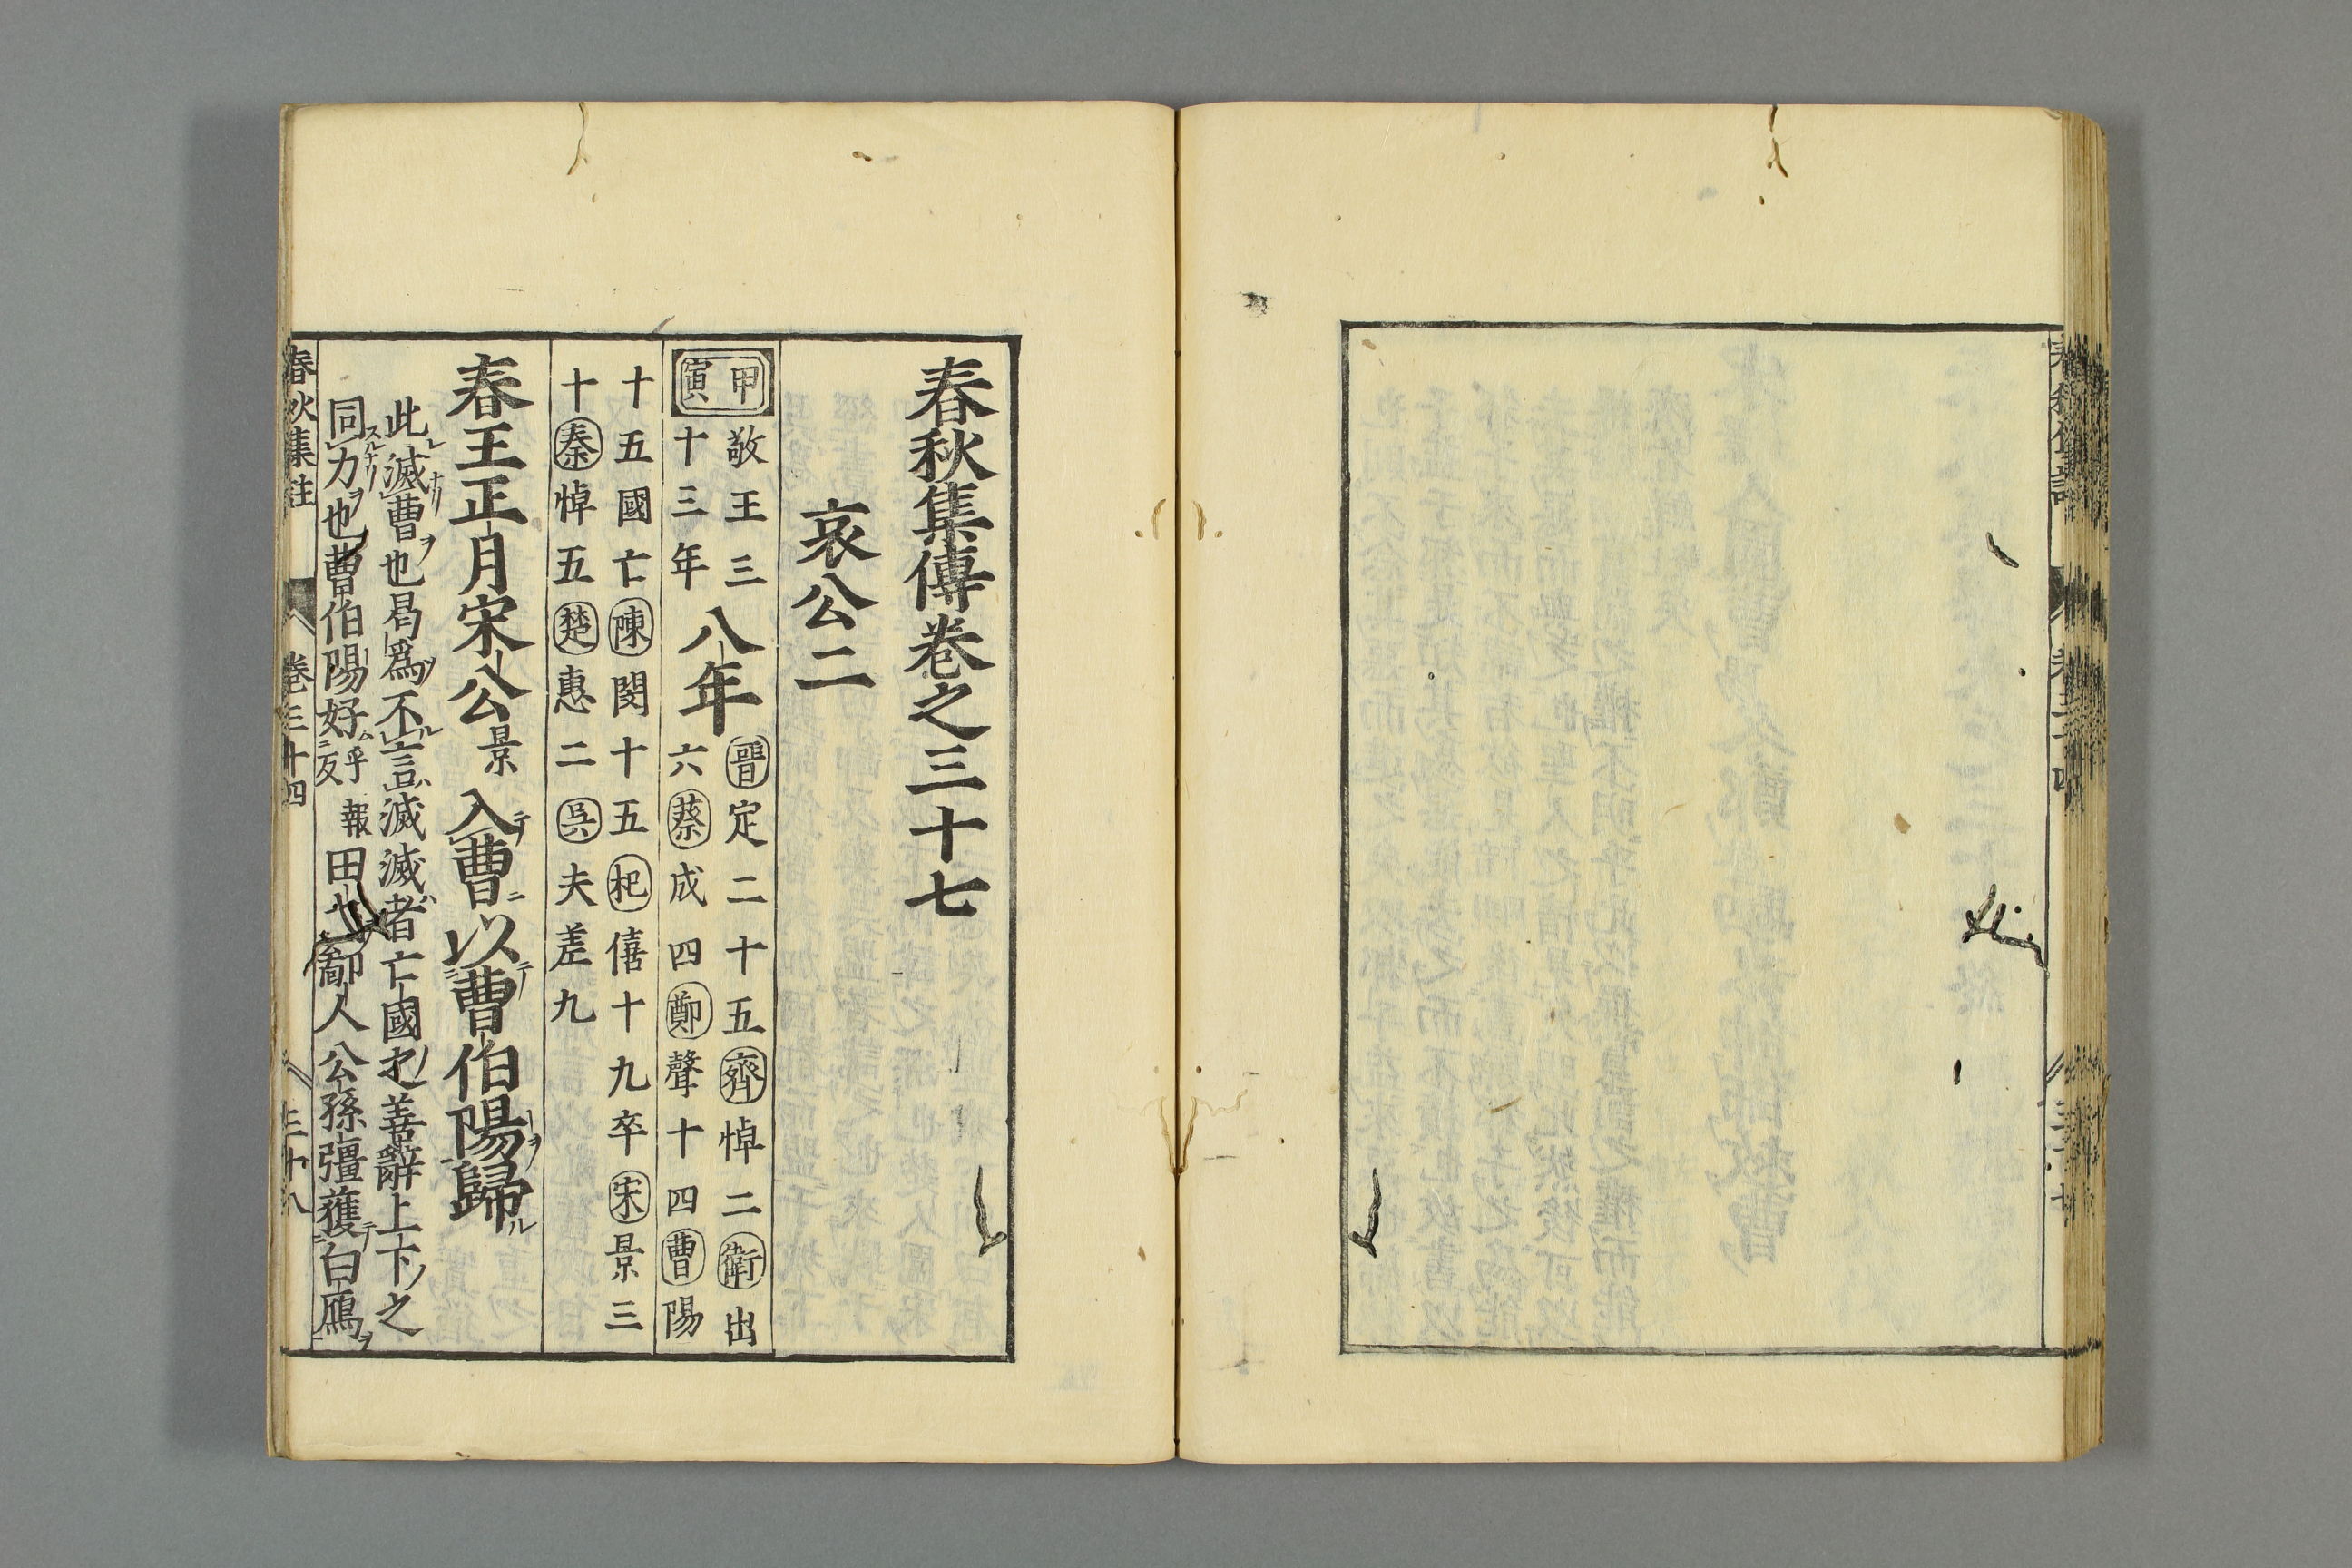 春秋集傳卷之三十七
哀公二
甲寅
敬王三十三年
八年
晉定二十五齊悼二衛出
六蔡成四鄭聲十四曹陽
十五國亡陳閔十五杞僖十九卒宋景三
十秦悼五楚惠二吳夫差九
春王正月宋公景入曹以曹伯陽歸
此滅曹也曷爲不言滅滅者亡國之善辭上下之
同力也曹伯陽好乎報反田也鄙人公孫彊獲白鴈
春秋集註 卷三十四 三十八